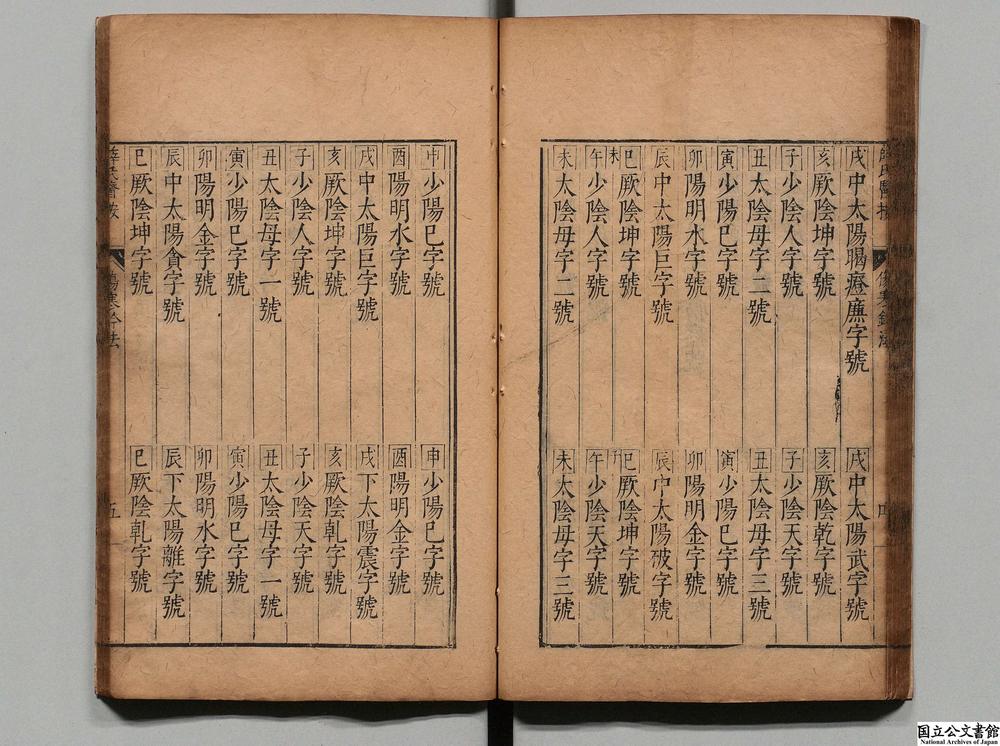 薛氏醫按 傷寒鈐法 四
戌中太陽暍痙廉字號 戌中太陽武字號
亥厥陰坤字號 亥厥陰乾字號
子少陰人字號 子少陰天字號
丑太陰母字二號 丑太陰母字三號
寅少陽巳字號 寅少陽巳字號
卯陽明水字號 卯陽明金字號
辰中太陽巨字號 辰中太陽破字號
巳厥陰坤字號 巳厥陰坤字號
午少陰人字號 午少陰天字號
未太陰母字二號 未太陰母字三號
申少陽巳字號 申少陽巳字號
酉陽明水字號 酉陽明金字號
戌中太陽巨字號 戌下太陽震字號
亥厥陰坤字號 亥厥陰乹字號
子少陰人字號 子少陰天字號
丑太陰母字一號 丑太陰母字一號
寅少陽巳字號 寅少陽巳字號
卯陽明金字號 卯陽明水字號
辰中太陽貪字號 辰下太陽離字號
巳厥陰坤字號 巳厥陰乹字號
薛氏醫按 傷寒鈐法 五
国立公文書館
National Archives of Japan